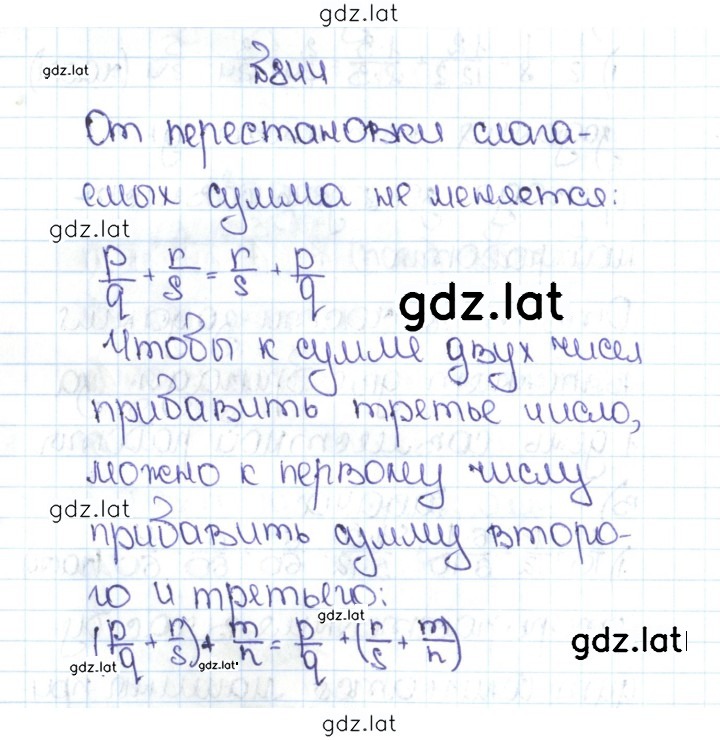 gdz.lat
gdz.lat
№844
От перестановки слага-
емых сумма не меняется:
gdz.lat
p/q + r/s = r/s + p/q
gdz.lat
Чтобы к сумме двух чисел
прибавить третье число,
можно к первому числу
gdz.lat
прибавить сумму второ-
го и третьего:
gdz.lat
(p/q + r/s) + m/n = p/q + (r/s + m/n)
gdz.lat
gdz.lat
gdz.lat
gdz.lat